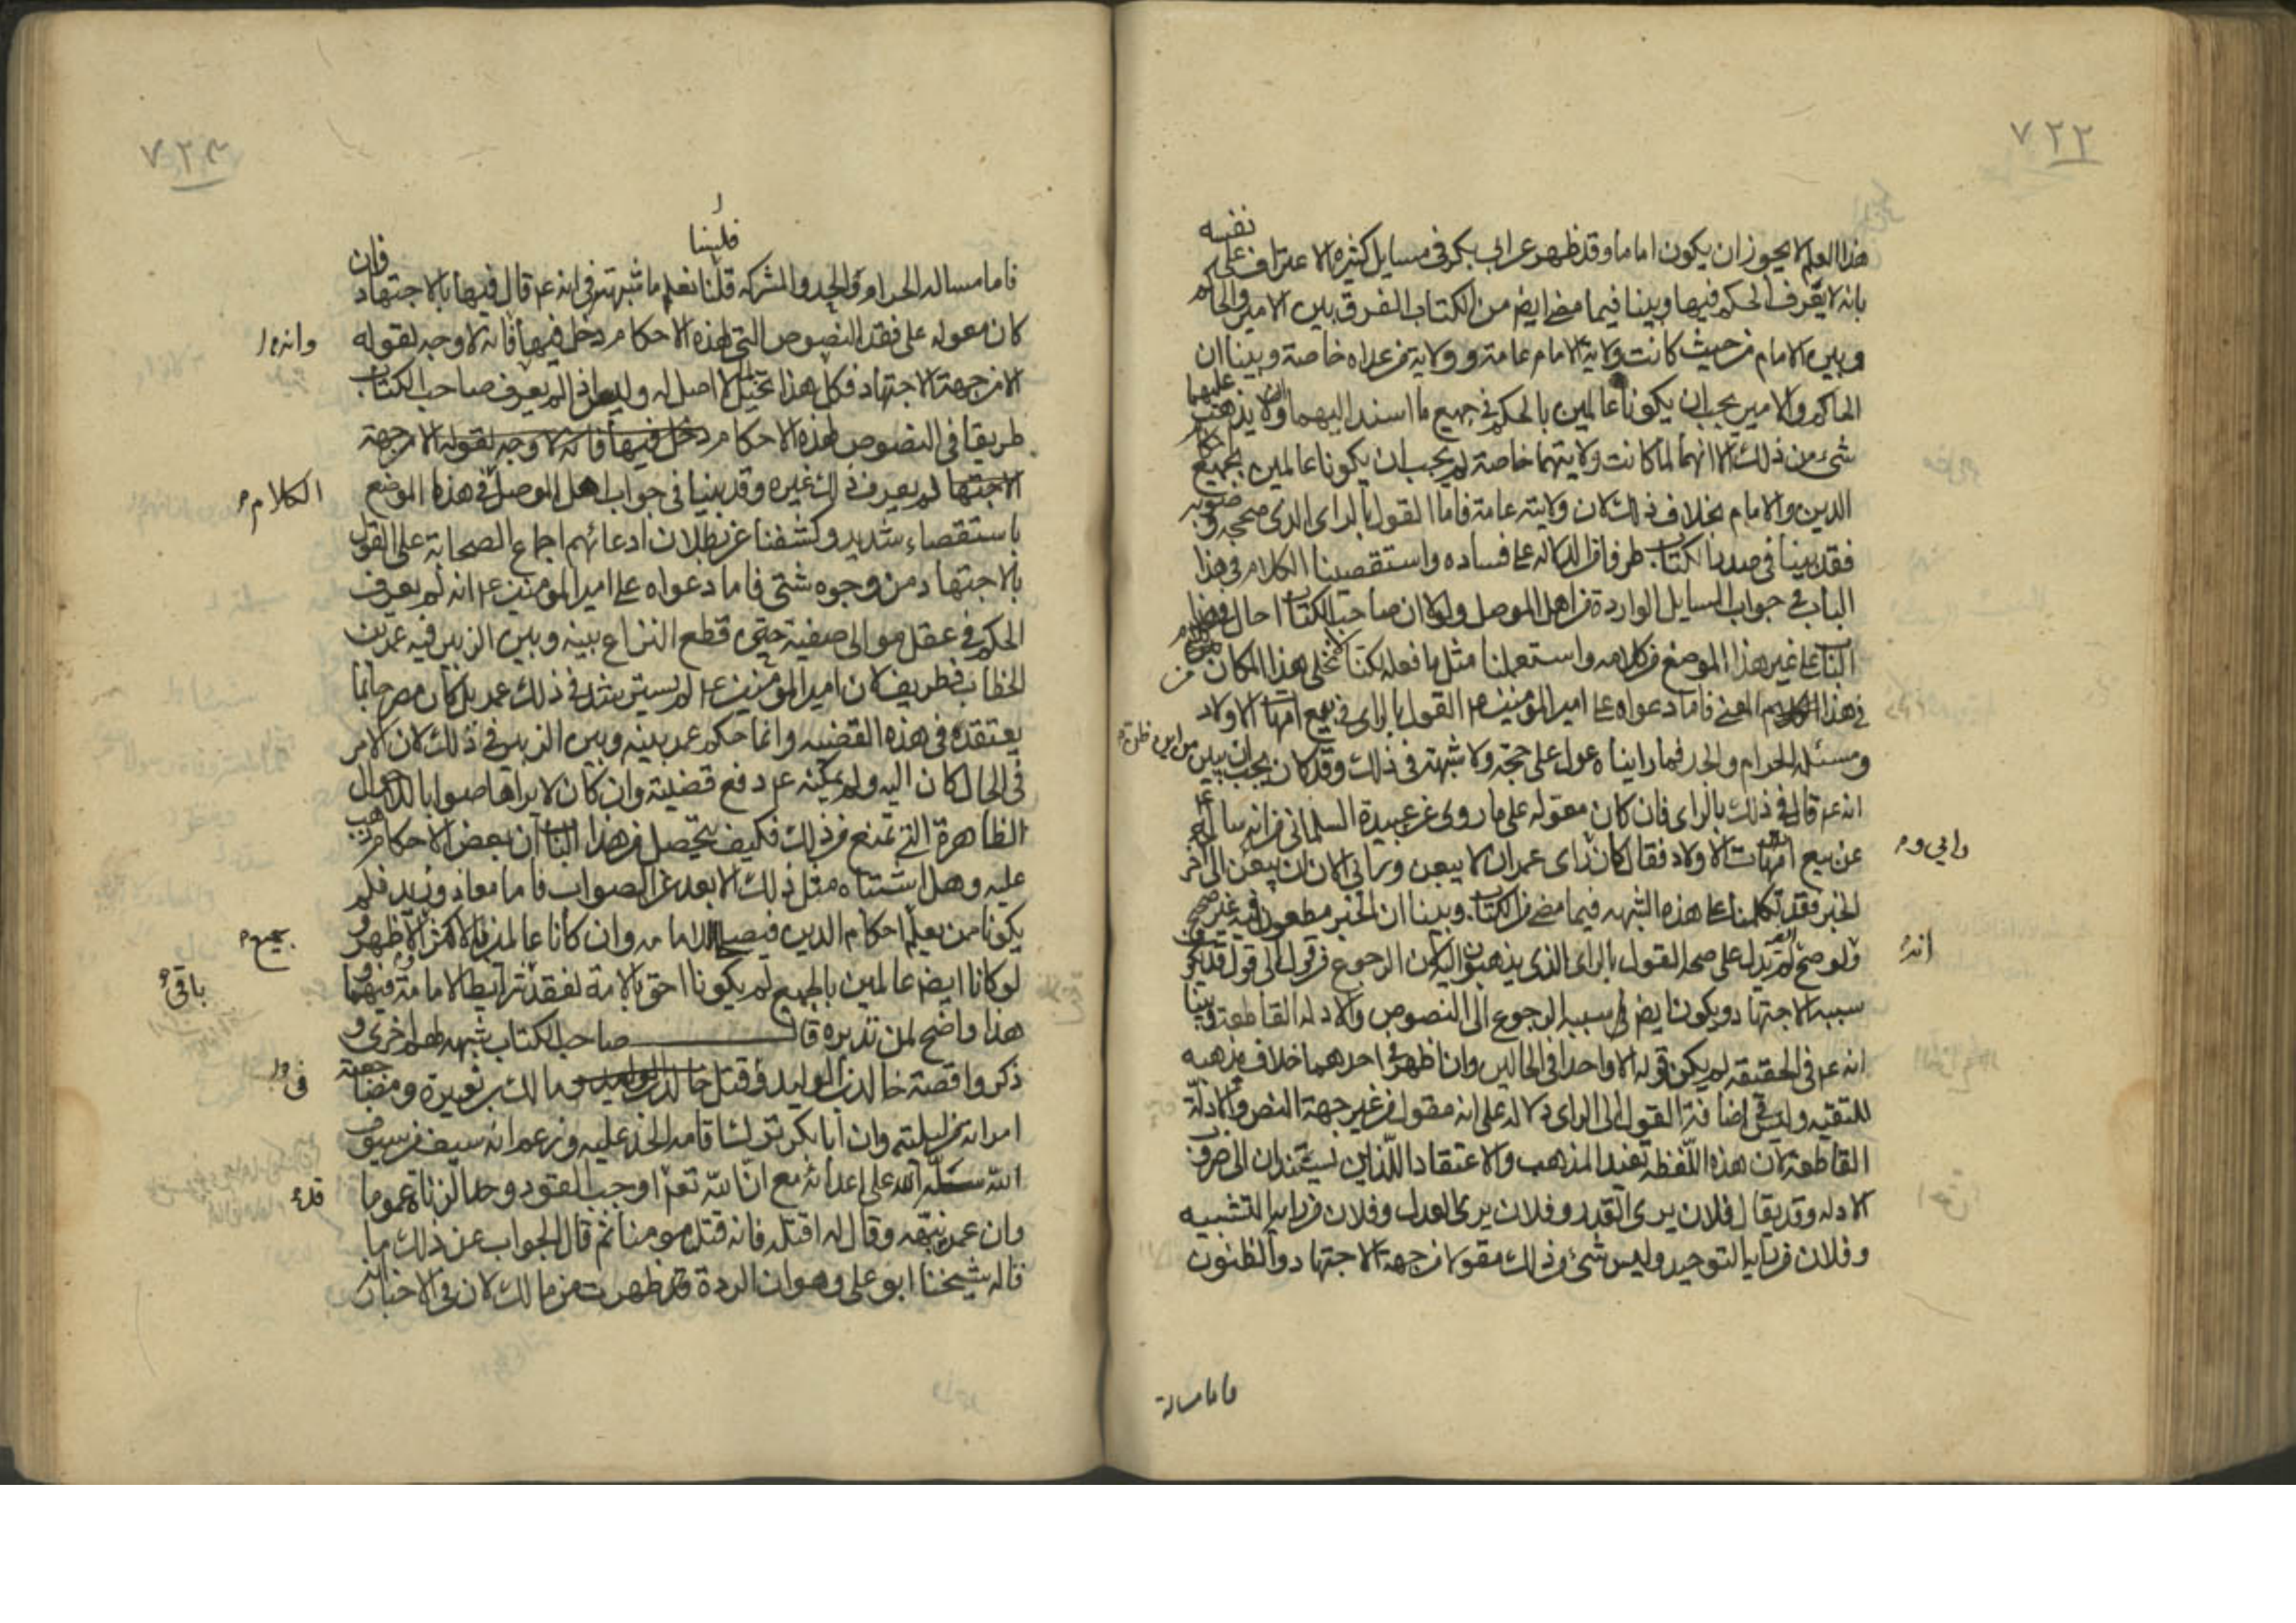 ٧٢٢
نفسه
هذا العلم لا يجوز ان يكون اماما وقد ظهر عن ابى بكر فى مسايل كثيرة الاعتراف على
بانه لا يعرف الحكم فيها وبينا فيما مضى ايضم من الكتاب الفرق بين الامير والحاكم
وبين الامام من حيث كانت ولاية الامام عامة وولاية من عداه خاصة وبينا ان
الحاكم والامير يجب ان يكونا عالمين بالحكم فى جميع ما اسند اليهما وان لا يذهب عليهما
شىء من ذلك الا انهما لما كانت ولايتهما خاصة لم يجب ان يكونا عالمين بجميع احكام
الدين والامام بخلاف ذلك لان ولايته عامة فاما القول بالراى الذى صححه وصوبه
فقد بينا فى صدر الكتاب طرفا من الدلالة على فساده واستقصينا الكلام فى هذا
الباب فى جواب المسايل الواردة من اهل الموصل ولولا ان صاحب الكتاب احال فى هذا
الباب على غير هذا الموضع من كلامه واستعملنا مثل ما فعله لكنا لا نخلى هذا المكان من
فى هذا المعنى فاما دعواه على امير المؤمنين م القول بالراى فى بيع امهات الاولاد
ومسئلة الحرام والجد فما رايناه عول على حجة ولا شبهة فى ذلك وقد كان يجب ان يبين من اين ظن م
انه عم قال فى ذلك بالراى فان كان معوله على ما روى عن عبيدة السلمانى من انه سأله عم
عن بيع امهات الاولاد فقال كان راى عمر ان لا يبعن ورائى الان ان يبعن الى اخر
ورايى و م
الخبر فقد تكلمنا على هذه الشبهه فيما مضى من الكتاب وبينا ان الخبر مطعون فيه غير صحيح
ولو صح لم يدل على صحة القول بالراى الذى يذهبون اليه لان الرجوع من قول الى قول قد يكون
انه
سببه الاجتهاد ويكون ايضم سببه الرجوع الى النصوص والادلة القاطعة وبينا
انه عم فى الحقيقة لم يكن قوله الا واحدا فى الحالين وان اظهر فى احدهما خلاف مذهبه
للتقيه وليس فى اضافة القول الى الراى دلالة على انه مقول من غير جهة النص والادلة
القاطعة لان هذه اللفظه تفيد المذهب والاعتقاد اللذاين يستندان الى ضروب
الادله وقد يقال فلان يرى القدر وفلان يرى العدل وفلان من رايه التشبيه
وفلان من رايه التوحيد وليس شىء من ذلك مقولا من جهة الاجتهاد والظنون
فاما مسالة
٧٢٣
فليبنا
فاما مسالة الحرام والجد والمشركه قلنا نعلم ما شبهته فى انه عم قال فيها بالاجتهاد فان
كان معوله على فقد النصوص التى لهذه الاحكام دخل فيها فانه لا وجه لقوله
وانه ا
الا من جهة الاجتهاد فكل هذا تخيل لا اصل له وليس اذا لم يعرف صاحب الكتاب
طريقا فى النصوص لهذه الاحكام دخل فيها فانه لا وجه لقوله الا من جهة
الاجتها لم يعرف ذلك غيره وقد بينا فى جواب اهل الموصل فى هذا الموضع
الكلام م
باستقصاء شديد وكشفنا عن بطلان ادعائهم اجماع الصحابة على القول
بالاجتهاد من وجوه شتى فاما دعواه على امير المومنين عم انه لم يعرف
الحكم فى عقل موالى صفية حتى قطع النزاع بينه وبين الزبير فيه عمر بن
الخطاب فطريف لان امير المومنين عم لم يستر شد فى ذلك عمر بل كان مصرحا بما
يعتقده فى هذه القضيه وانما حكم عمر بينه وبين الزبير فى ذلك لان الامر
فى الحال كان اليه ولم يمكنه عم دفع قضيته وان كان لا يراها صوابا للاحوال
الظاهرة التى تمنع من ذلك فكيف يتحصل من هذا الباب ان بعض الاحكام ذهب
عليه وهل اشتباه مثل ذلك الا بعد عن الصواب فاما معاذ وزيد فلم
يكونا ممن يعلم احكام الدين فيصلح للامامة وان كانا عالمين بالاكثر الاظهر و
بجميع م
لو كانا ايضم عالمين بالجميع لم يكونا احق بالامة لفقد شرايط الامامة فيهما و
باقى
هذا واضح لمن تدبره قال صاحب الكتاب شبهه لهم اخرى و
ذكروا قصة خالد بن الوليد وقتل خالد بن الوليد ومالك بن نويرة ومضاجعته
فى و ا
امراته من ليلته وان ابا بكر ترك اقامة الحد عليه وزعم انه سيف من سيوف
الله سله الله على اعدائه مع ان الله تعم اوجب القود وحد الزناة عموما
قد
وان عمر نبهه وقال له اقتله فانه قتل مومنا ثم قال الجواب عن ذلك ما
قاله شيخنا ابو على وهو ان الردة قد ظهرت من مالك لان فى الاخبار